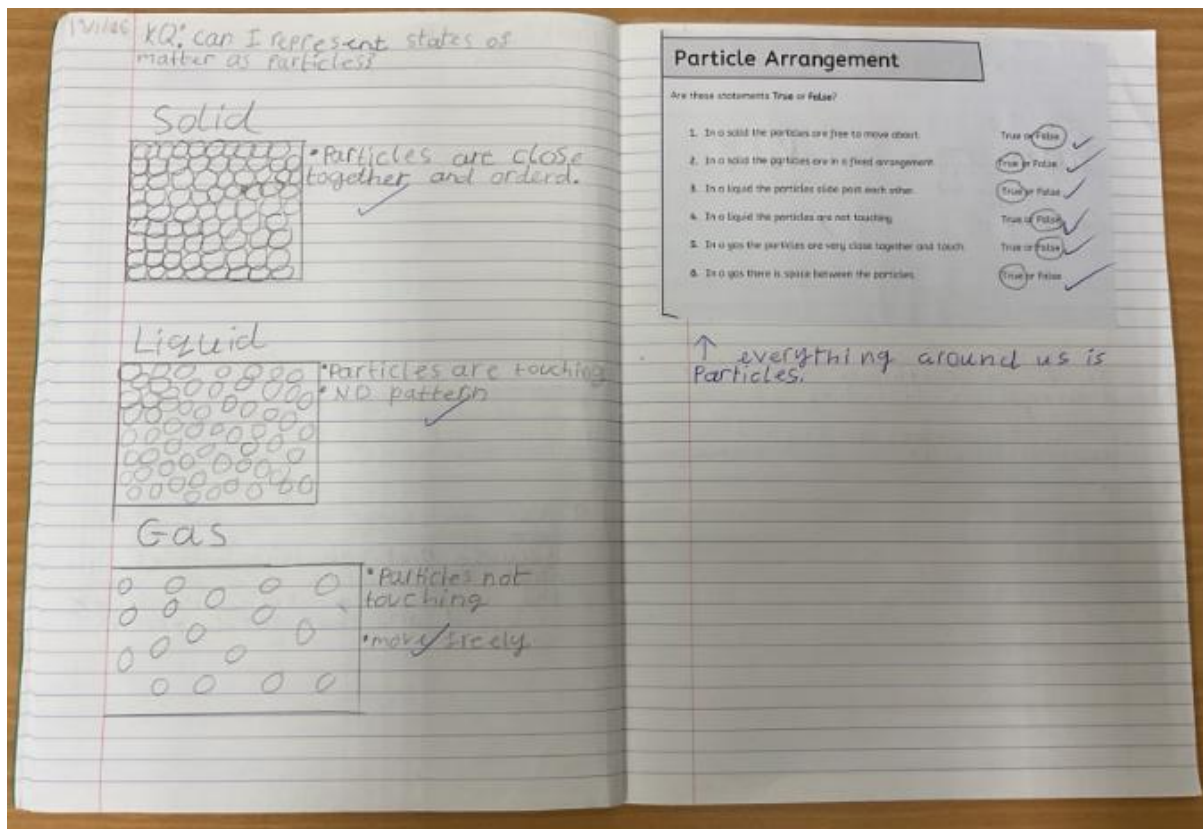 KQ: can I represent states of
matter as Particless?
Solid
• Particles are close
together and orderd.
Liquid
• Particles are touching
• NO pattern
Gas
• Particles not
touching
• move freely
Particle Arrangement
Are these statements True or False?
1. In a solid the particles are free to move about. True or False
2. In a solid the particles are in a fixed arrangement. True or False
3. In a liquid the particles slide past each other. True or False
4. In a liquid the particles are not touching. True or False
5. In a gas the particles are very close together and touch. True or False
6. In a gas there is space between the particles. True or False
↑ everything around us is
Particles.